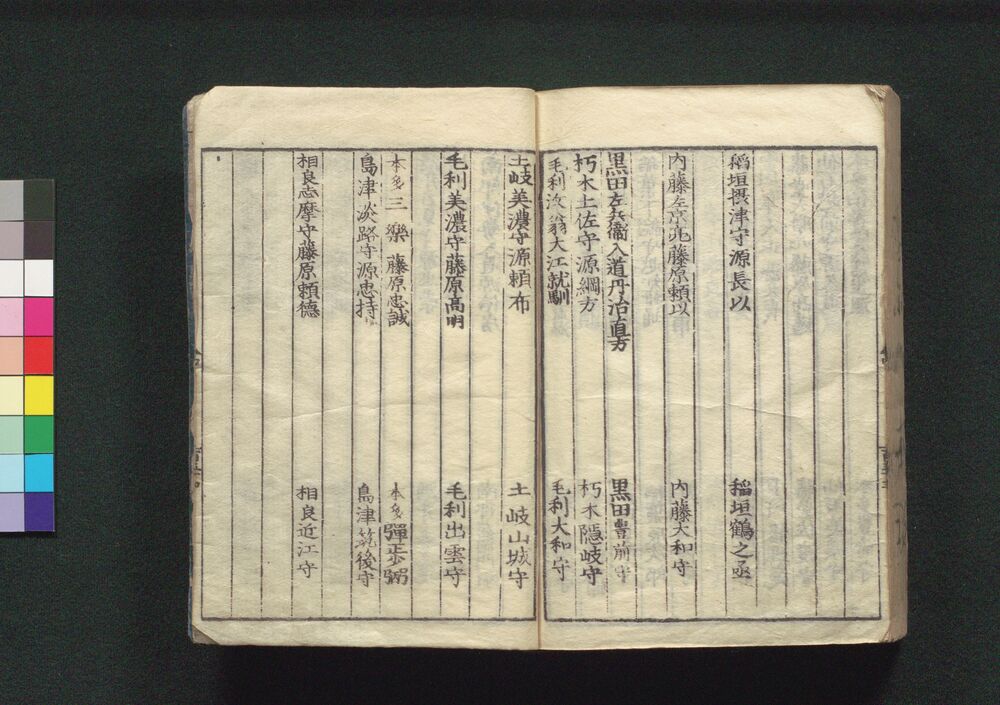 稲垣摂津守源長以　稲垣鶴之丞
内藤左京亮藤原頼以　内藤大和守
黒田左兵衞入道丹治直方　黒田豊前守
朽木土佐守源綱方　朽木隠岐守
毛利汝翁大江就馴　毛利大和守
土岐美濃守源頼布　土岐山城守
毛利美濃守藤原高明　毛利出雲守
本多三樂藤原忠誠　本多彈歩弼
島津淡路守源忠持　島津筑後守
相良志摩守藤原頼徳　相良近江守